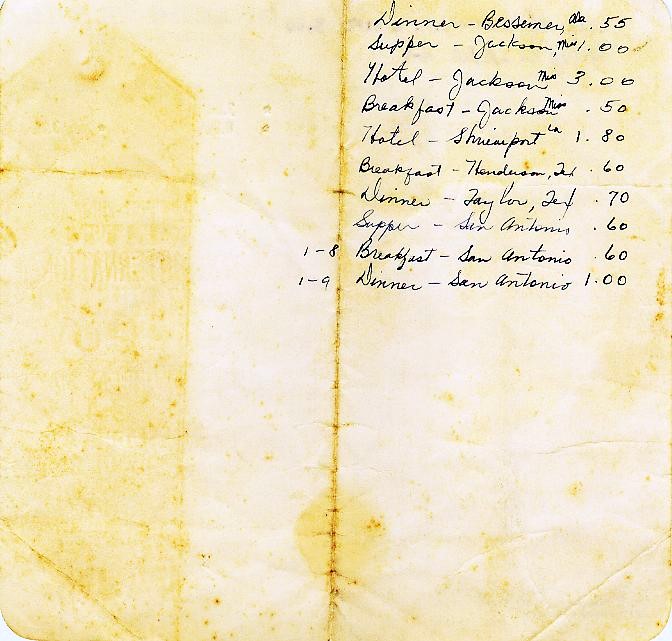 Dinner - Bessemer, Ala. .55
Supper - Jackson, Miss 1.00
Hotel - Jackson Miss 3.00
Breakfast - Jackson Miss .50
Hotel - Shreveport La 1.80
Breakfast - Henderson, Tex .60
Dinner - Taylor, Tex .70
Supper - San Antonio .60
1-8 Breakfast - San Antonio .60
1-9 Dinner - San Antonio 1.00